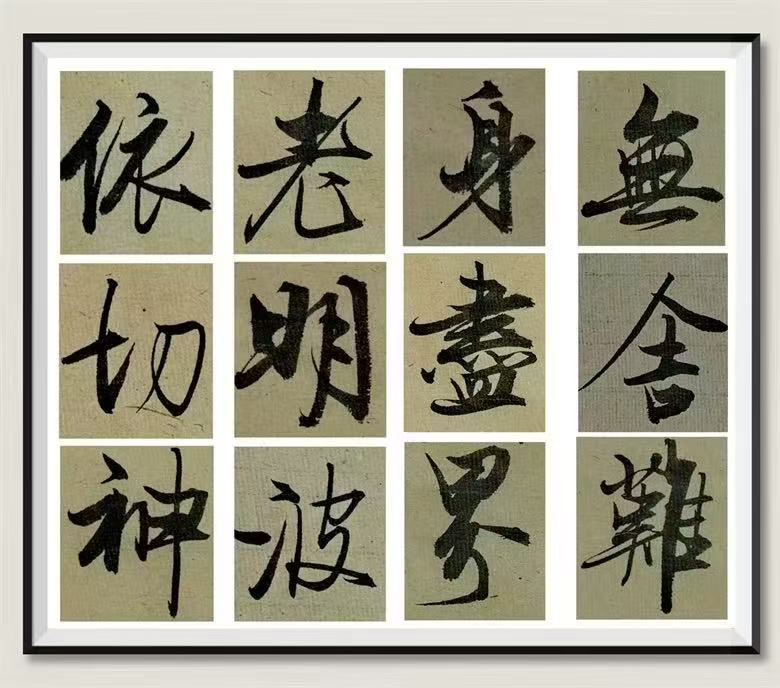 依老身無
切明盡舍
神波界難